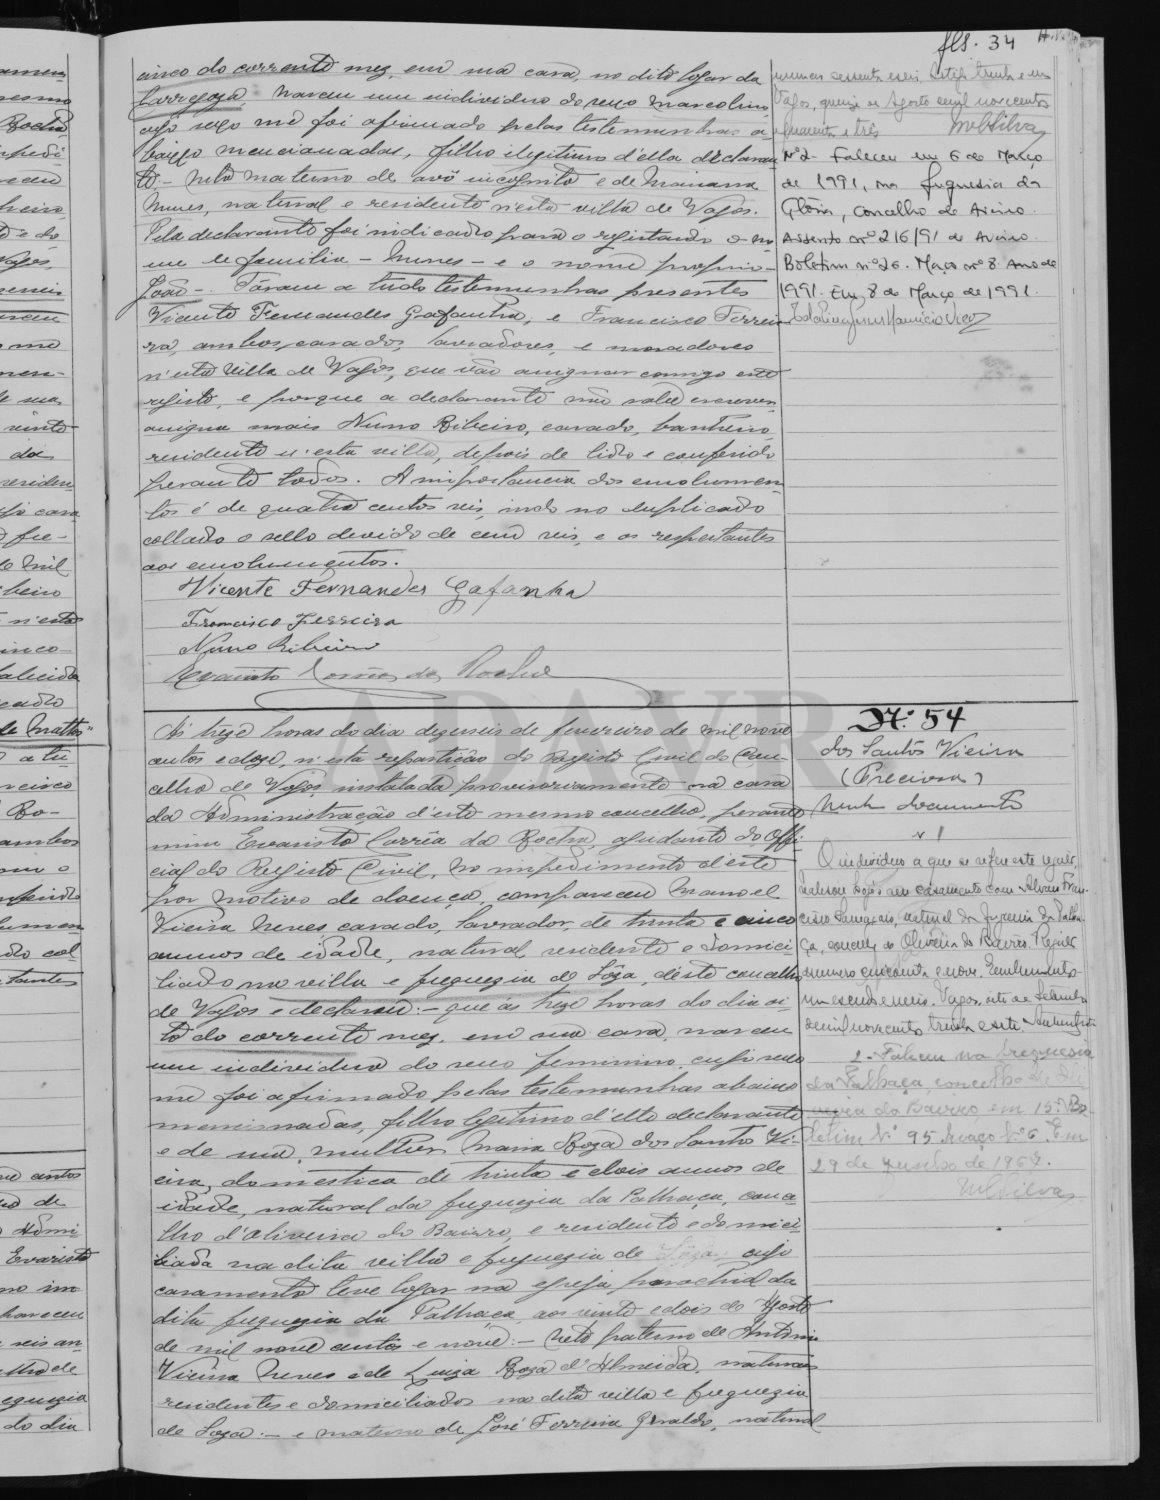 fls. 34
cinco do corrente mez, em sua casa, no dito logar da
Carregosa, nasceu um individuo do sexo masculino
cujo sexo me foi afirmado pelas testemunhas a-
baixo mencionadas, filho ilegitimo d'ella declaran
te.- Neto materno de avô incognito e de Marianna
Nunes, natural e residente n'esta villa de Vagos.
Pela declarante foi indicado para o registando o no
me de familia - Nunes - e o nome proprio -
João -. Foram a tudo testemunhas presentes
Vicente Fernandes Gafanha, e Francisco Ferrei
ra, ambos casados, lavradores, e moradores
n'esta villa de Vagos, que vão assignar comigo este
registo, e porque a declarante não sabe escrever
assigna mais Nuno Ribeiro, casado, banheiro
residente n'esta villa, depois de lido e conferido
perante todos. A importancia dos emolumen
tos é de quatro centos reis, indo no duplicado
collado o sello devido de cem reis, e os respeitantes
aos emolumentos.
Vicente Fernandes Gafanha
Francisco Ferreira
Nuno Ribeiro
Evaristo Corrêa da Rocha
numero sessenta e seis
Vagos, quinze de Agosto de mil novecentos
quarenta e três MCSilva
Nº 2 - Faleceu em 6 de Março
de 1991, na freguesia da
Glória, concelho de Aveiro.
Assento nº 216/91 de Aveiro.
Boletim nº 26. Maço nº 8. Ano de
1991. Em, 8 de Março de 1991.
ADAVR
Ás treze horas do dia dezeseis de fevereiro de mil nove
centos e doze, n'esta repartição do Registo Civil do Con-
celho de Vagos, installada provisoriamente na casa
da Administração d'este mesmo concelho, perante
mim Evaristo Corrêa da Rocha, ajudante do Offi-
cial do Registo Civil, no impedimento d'este
por motivo de doença, compareceu Manoel
Vieira Neves, casado, lavrador, de trinta e cinco
annos de idade, natural residente e domici
liado na villa e freguezia de Sôza, d'este concelho
de Vagos e declarou:- que ás treze horas do dia oi-
to do corrente mez, em sua casa, nasceu
um individuo do sexo feminino, cujo sexo
me foi afirmado pelas testemunhas abaixo
mencionadas, filho legitimo d'elle declarante
e de sua mulher Maria Roza dos Santos Vi-
eira, domestica de trinta e dois annos de
idade, natural da freguezia da Palhaça, conce
lho d'Oliveira do Bairro, e residente e domici-
liada na dita villa e freguezia de Sôza, cujo
casamento teve logar na egreja parochial da
dita freguezia da Palhaça, aos vinte e dois de Agosto
de mil nove centos e nove.- Neto paterno de Antonio
Vieira Neves e de Luiza Roza d'Almeida, naturaes
residentes e domiciliados na dita villa e freguezia
de Soza.- e materno de José Ferreira Giraldo, natural
Nº 54
dos Santos Vieira
(Preciosa)
Nenh documento
Nº 1
O individuo a que se refere este registo,
realisou hoje o seu casamento com Alvaro Fran-
cisco , natural da freguesia da Palha-
ça, concelho de Oliveira do Bairro. Registo
numero cincoenta e nove. Emolumentos
um escudo e meio. Vagos, sete de Setembro
de mil novecentos trinta e sete
2 - Faleceu na freguesia
da Palhaça, concelho de Oli
veira do Bairro, em 15. Bo-
letim Nº 95. Maço Nº 6. Em
29 de Junho de 1967.
MCSilva